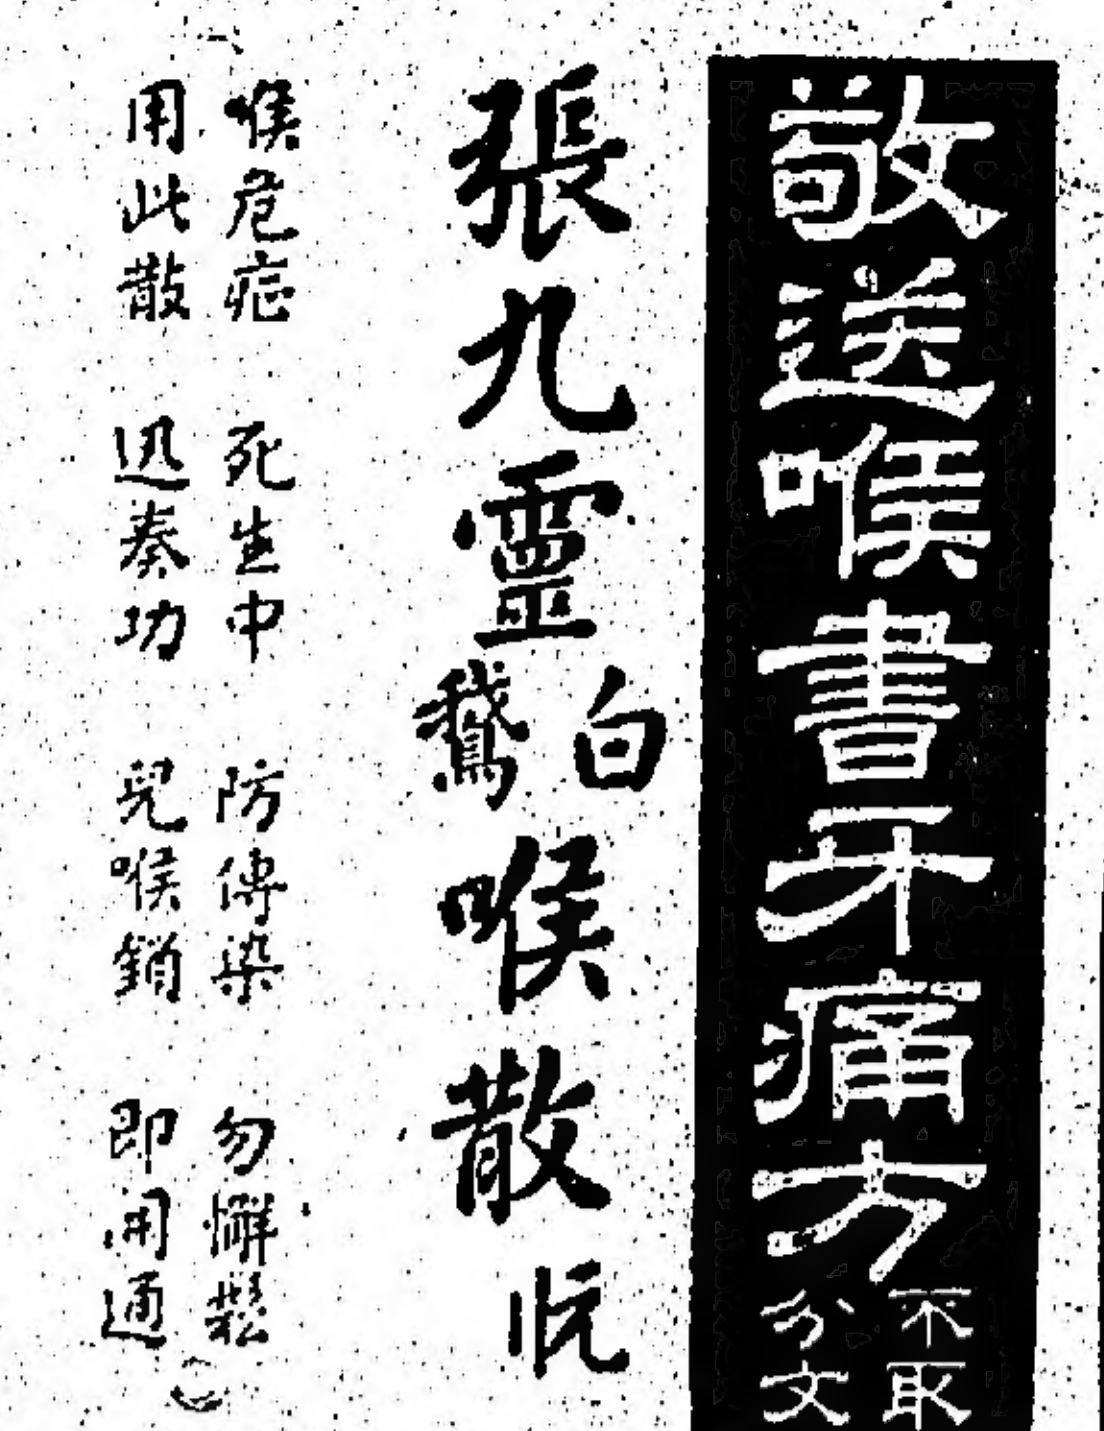 敬送喉書牙痛方
不取
分文
張九靈
白
鵝
喉散
喉危症 死生中 防傳染 勿懈鬆
用此散 迅奏功 兒喉鎖 即用通